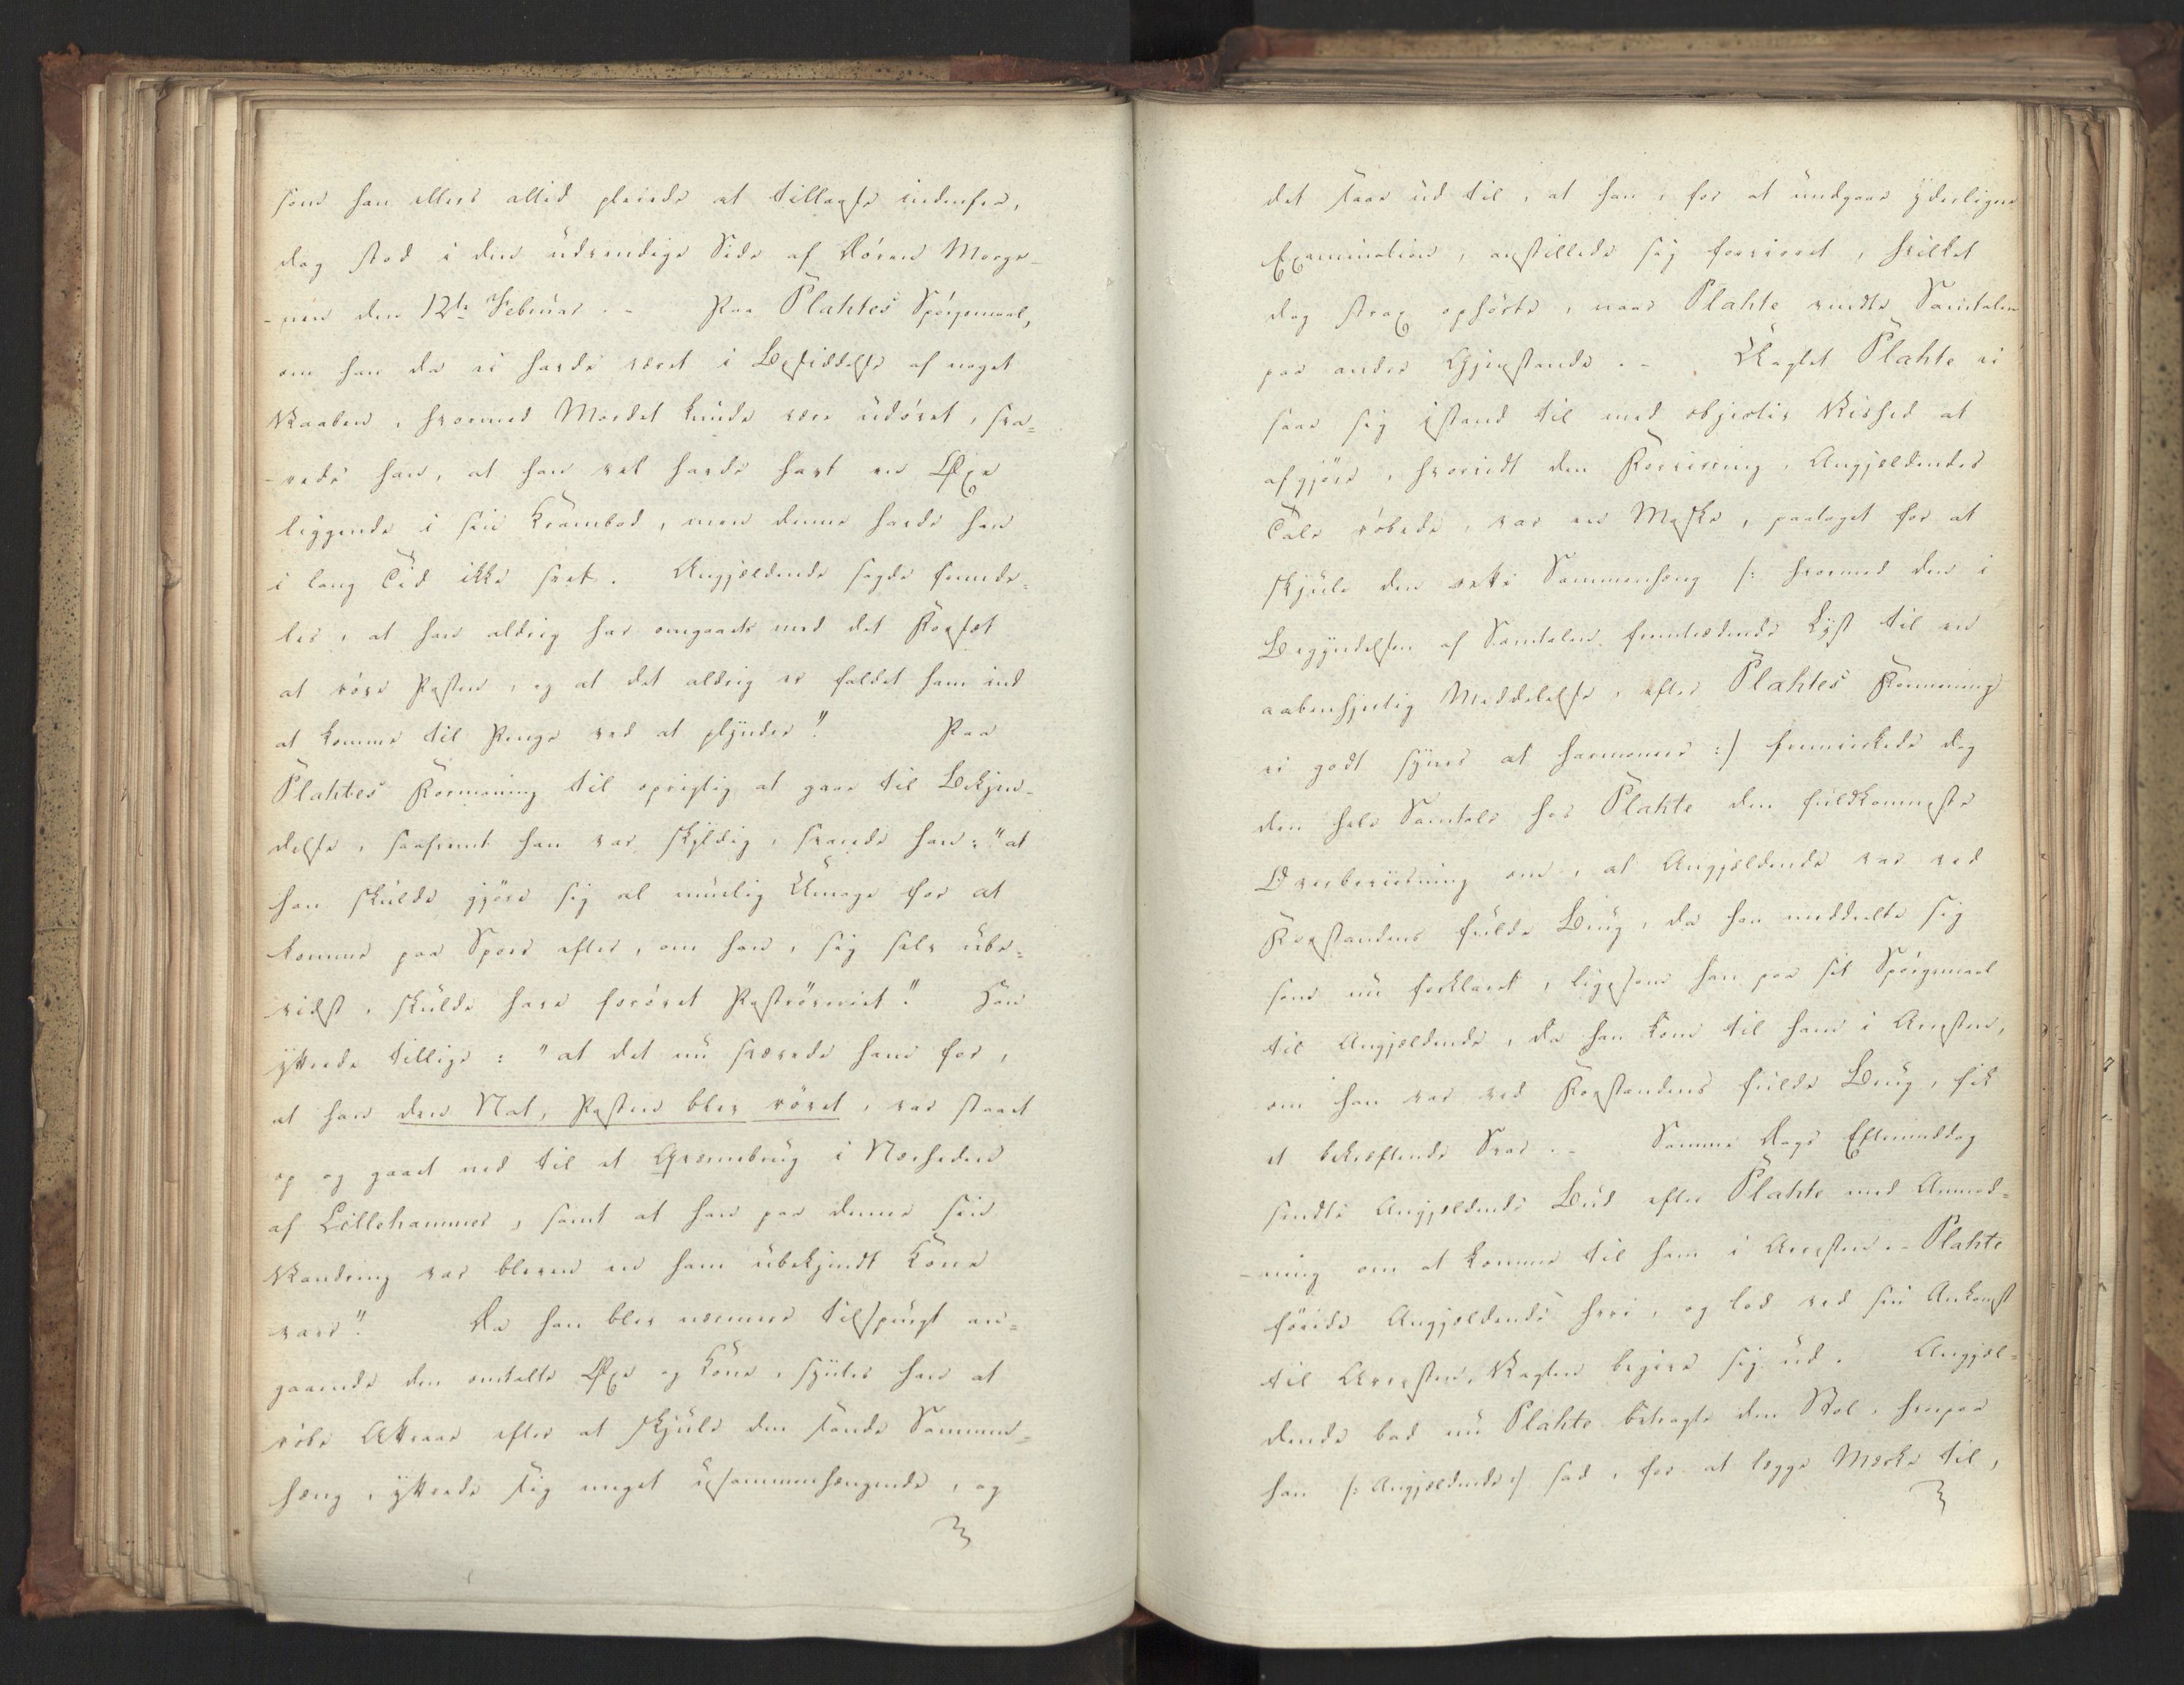 som han ellers altid pleiede at tillaase indenfor,
dog stod i den udvendige Side af Døren Morge-
-nen den 12te Februar. - Paa Plahtes Spørgsmaal,
om han da ei havde været i Besiddelse af noget
Vaaben, hvormed Mordet kunde være udøvet, sva=
-rede han, at han vel havde havt en Øxe
liggende i sin Krambod, men denne havde han
i lang Tid ikke seet. Angjældende sagde fremde=
les, at han aldrig har omgaaets med det Forsæt
at røve Posten, og at det aldrig er faldet ham ind
at komme til Penge ved at plyndre". Paa
Plahtes Formaning til oprigtig at gaae til Bekjen-
delse, saafremt han var skyldig, svarede han: "at
han skulde gjøre sig al muelig Umage for at
komme paa Spor efter, om han, sig selv ube=
vidst, skulde have forøvet Postrøveriet". Han
yttrede tillige: "at det nu svævede ham for,
at han den Nat, Posten blev røvet, var staaet
op og gaaet ned til et Grænnebrug i Nærheden
af Lillehammer, samt at han paa denne sin
Vandring var bleven en ham ubekjendt Kone
vaer". Da han blev nærmere tilspurgt an=
gaaende den omtalte Øxe og Kone, syntes han at
røbe Attraae efter at skjule den sande Sammen=
hæng, yttrede sig meget usammenhængende, og
det saae ud til, at han, for at undgaae yderligere
Examination, anstillede sig forvirret, hvilket
dog strax ophørte, naar Plahte vendte Samtalen
paa andre Gjenstande. - Uagtet Plahte ei
saae sig istand til med objectiv Vished at
afgjøre, hvorvidt den Forvirring, Angjældendes
Tale røbede, var en Maske, paataget for at
skjule den rette Sammenhæng /: hvormed den i
Begyndelsen af Samtalen fremtrædende Lyst til en
aabenhjertig Meddelelse, efter Plahtes Formening
ei godt synes at harmonere :/ fremvirkede dog
den hele Samtale hos Plahte den fuldkomneste
Overbeviisning om, at Angjældende var ved
Forstandens fulde Brug, da han meddeelte sig
som nu forklaret, ligesom han paa sit Spørgsmaal
til Angjældende, da han kom til ham i Arresten,
om han var ved Forstandens fulde Brug, fik
et bekræftende Svar. - Samme Dags Eftermiddag
sendte Angjældende Bud efter Plahte med Anmod=
-ning om at komme til ham i Arresten. - Plahte
føiede Angjældende heri, og lod ved sin Ankomst
til Arresten, Vagten begive sig ud. Angjæl=
dende bad nu Plahte betragte den Stol, hvorpaa
han /: Angjældende :/ sad, for at lægge Mærke til,